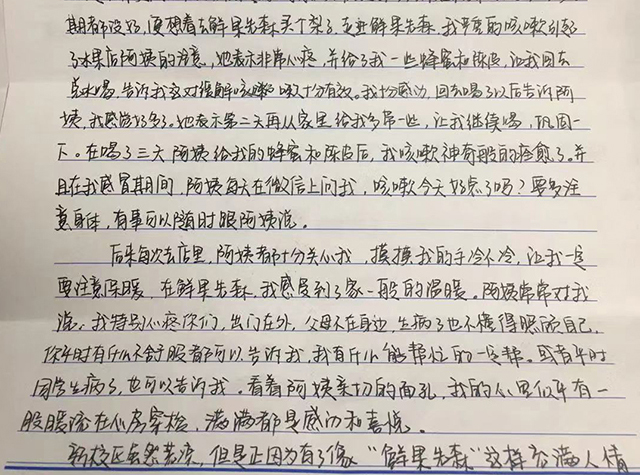 期都没好,便想着去鲜果先森买个梨子。在逛鲜果先森,我严重的咳嗽引起
了水果店阿姨的注意,她表示非常心疼,并给了我一些蜂蜜和陈皮,让我回去
泡水喝,告诉我这对缓解咳嗽咳十分有效。我十分感动,回去喝了以后告诉阿
姨,我感觉好多了。她表示第二天再从家里给我多带一些,让我继续喝,巩固一
下。在喝了三天阿姨给我的蜂蜜和陈皮后,我咳嗽神奇般的痊愈了。并
且在我感冒期间,阿姨每天在微信上问我,咳嗽今天好点了吗?要多注
意身体,有事可以随时跟阿姨说。
后来每次去店里,阿姨都十分关心我,摸摸我的手冷不冷,让我一定
要注意保暖,在鲜果先森,我感受到了家一般的温暖。阿姨常常对我
说,我特别心疼你们,出门在外,父母不在身边,生病了也不懂得照顾自己,
你平时有什么不舒服都可以告诉我,我有什么能帮忙的一定帮。或者平时
同学生病了,也可以告诉我。看着阿姨亲切的面孔,我的心里似乎有一
股暖流在心房穿梭,满满都是感动和喜悦。
新校区虽然荒凉,但是正因为有了像“鲜果先森”这样充满人情